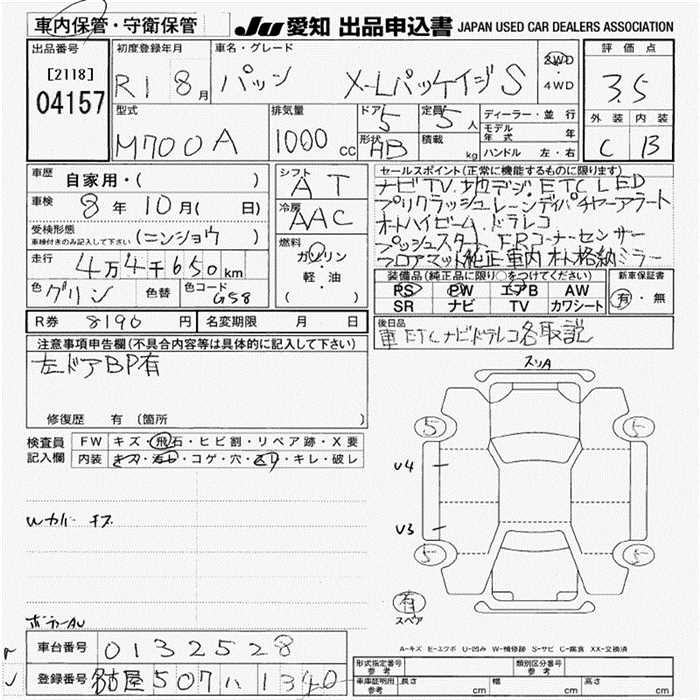 車内保管・守衛保管
JU 愛知 出品申込書 JAPAN USED CAR DEALERS ASSOCIATION
出品番号 初度登録年月 車名・グレード 評価点
[2118]
04157
R1 8月 パッソ X-Lパッケイジ S 2WD・4WD 3.5
型式 排気量 ドア 5 定員 5人 ディーラー・並行 外装 内装
M700A 1000cc 形状 HB 積載 kg モデル年式 年 C B
ハンドル 左・右
車歴 自家用・( ) シフト AT セールスポイント(正常に機能するものに限ります)
ナビTV.地デジ.ETC LED
車検 8年10月(日) 冷房 AAC プリクラッシュ レーンディパーチャーアラート
オートハイビーム.ドラレコ
受検形態 車検付きのみ記入して下さい (ニンショウ) 燃料 ガソリン・軽・油 ( ) プッシュスタート.FRコーナーセンサー
フロアマット純正 車内 オート格納ミラー
走行 4万4千650km
色 グリン 色替 色コード G58
装備品(純正品に限り○をつけてください) 新車保証書
PS PW エアB AW 有・無
SR ナビ TV カワシート
R券 8190円 名変期限 月 日
後日品 車ETCナビドラレコ各取説
注意事項申告欄(不具合内容等は具体的に記入して下さい)
左ドアBP有
修復歴 有 〔箇所 〕
検査員記入欄 FW キズ・飛石・ヒビ割・リペア跡・X要
内装 キズ・汚れ・コゲ・穴・スリ・キレ・破レ
スリA
5 5
U4
U3
5 5
Wカバー キズ
有
スペア
ボデーAU
A-キズ E-エクボ U-凹み W-補修跡 S-サビ C-腐食 XX-交換済
車台番号 0132528
登録番号 名古屋 507 ハ 1340
形式指定番号 参考 類別区分番号 参考
車庫証明用 参考 長さ cm 幅 cm 高さ cm